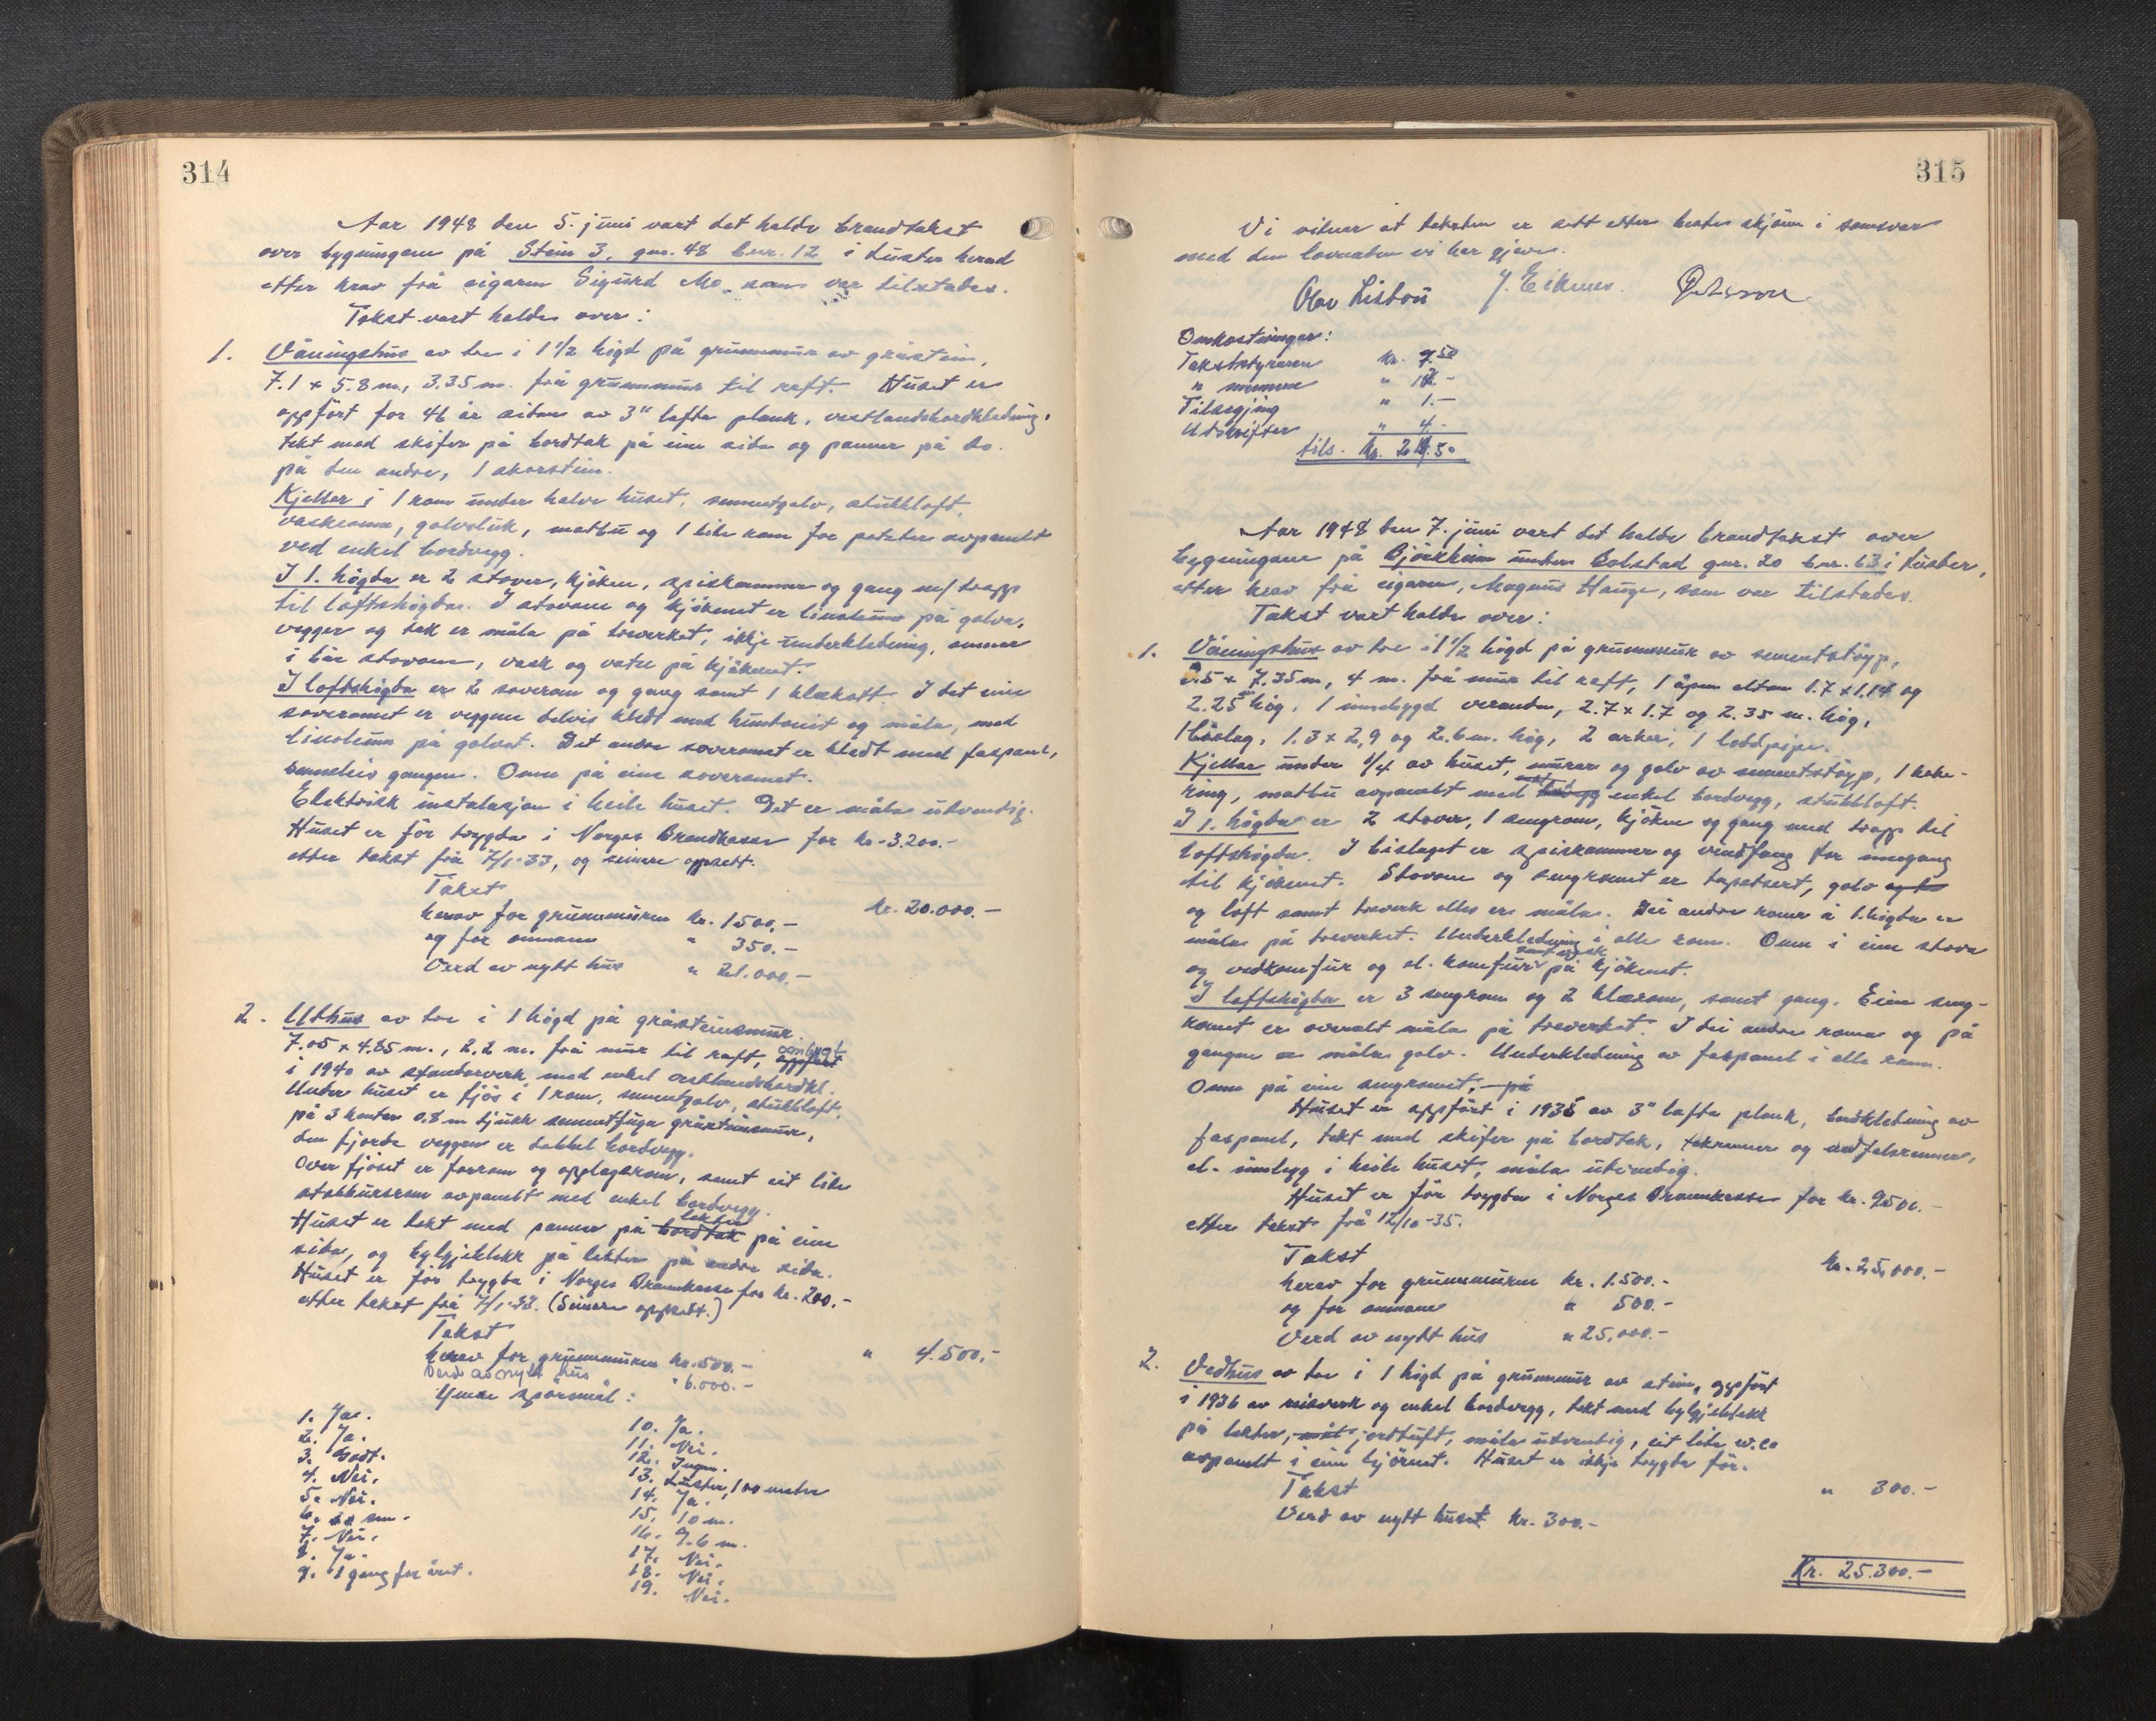 314
Aar 1948 den 5. juni vart det halde brandtakst
over bygningane på Stein 3, gnr. 48 bnr. 12 i Luster herad
etter krav frå eigaren Sigurd Mo som var tilstades.
Takst vart halde over:
1. Våningshus av tre i 1 1/2 högd på grunnmur av gråstein,
7.1 x 5.8 m, 3.35 m. frå grunnmur til raft. Huset er
oppfört for 46 år sidan av 3" lafta plank, vestlandsbordkledning,
tekt med skifer på bordtak på eine sida og panner på do.
på den andre, 1 skorstein.
Kjellar i 1 rom under halve huset, sementgolv, stubbloft,
golvsluk, matbu og 1 lite rom for poteter avpanelt
ved enkel bordvegg.
I 1. högda er 2 stover, kjöken, spiskammer og gang m/ trapp
til loftshögda. I stovane og kjökenet er linoleum på golva,
vegger og tak er måla på treverket, ikkje underkledning, omnar
i båe stovane, vask og vatn på kjökenet.
I loftshögda er 2 soverom og gang samt 1 klekott. I det eine
soveromet er veggene delvis kledt med huntonit og måla, med
linoleum på golvet. Det andre soveromet er kledt med faspanel,
sameleis gangen. Omn på eine soveromet.
Elektrisk instalasjon i heile huset. Det er måla utvendig.
Huset er för trygda i Norges Brandkasse for kr. 3.200.-
etter takst frå 7/1-33, og seinare oppsett.
Takst kr. 20.000.-
herav for grunnmuren kr. 1500.-
og for omnane " 350.-
Verd av nytt hus " 21.000.-
2. Uthus av tre i 1 högd på gråsteinsmur.
7.05 x 4.85 m., 2.2 m. frå mur til raft, oppfört ombygt
i 1940 av standarverk med enkel vestlandsbordkl.
Under huset er fjös i 1 rom, sementgolv, stubbloft,
på 3 kanter 0.8 m tjukk sementfuga gråsteinsmur,
den fjorde veggen er dobbel bordvegg.
Over fjöset er forrom og opplagsrom, samt eit lite
stabbursrom avpanelt med enkel bordvegg.
Huset er tekt med panner på bordtak lekter på eine
sida, og bylgjeblekk på lekter på andre sida.
Huset er för trygda i Norges Brannkasse for kr. 200.-
etter takst frå 7/1-33. (Seinare oppsett.)
Takst " 4.500.-
herav for grunnmuren kr. 500.-
Verd av nytt hus " 6.000.-
Ymse spörsmål:
1. Ja.
2. Ja.
3. Godt.
4. Nei.
5. Nei.
6. sm.
7. Nei.
8. Ja.
9. 1 gang for året.
10. Ja.
11. Nei.
12. Ingen.
13. Luster, 100 meter
14. Ja.
15. 10 m.
16. 9.6 m.
17. Nei.
18. Nei.
19. Nei.
315
Vi vitner at taksten er sett etter beste skjönn i samsvar
med den lovnaden vi har gjeve.
Olav Lisbou J. Eikenes
Omkostninger:
Takstsyraren kr. 7.50
" mennene " 12.-
Tilseging " 1.-
Utskrifter " 4.-
tils. kr. 24.50
Aar 1948 den 7. juni vart det halde brandtakst over
bygningane på Björkheim under Bolstad gnr. 20 bnr. 63 i Luster,
etter krav frå eigaren, Magnus Hauge, som var tilstades.
Takst vart halde over:
1. Våningshus av tre i 1 1/2 högd på grunnmur av sementstöyp,
7.35 m, 4 m. frå mur til raft, 1 åpen altan 1.7 x 1.14 og
2.25 hög, 1 innebygd veranda, 2.7 x 1.7 og 2.35 m. hög,
1 bislag, 1.3 x 2,9 og 2.6 m. hög, 2 arker, 1 loddpipe.
Kjellar under 1/4 av huset, murer og golv av sementstöyp, 1 hob-
ring, matbu avpanelt med enkel bordvegg, stubbloft.
I 1. högda er 2 stover, 1 sengrom, kjöken og gang med trapp til
loftshögda. I bislaget er spiskammer og vindfang for inngang
til kjökenet. Stovene og sengromet er tapetsert, golv og t
og loft samt treverk elles er måla. Dei andre romi i 1. högda er
måla på treverket. Underkledning i alle rom. Omn i eine stova
og vedkomfur og el. komfur samt vask på kjökenet.
I loftshögda er 3 sengrom og 2 klærom, samt gang. Eine seng-
romet er overalt måla på treverket. I dei andre roma og på
gangen er måla golv. Underkledning av faspanel i alle rom.
Omn på eine sengromet, på
Huset er oppfört i 1935 av 3" lafta plank, bordkledning av
faspanel, tekt med skifer på bordtak, takrenner og nedfalsrenner,
el. innlegg i heile huset, måla utvendig.
Huset er för trygda i Norges Brannkasse for kr. 9500.-
etter takst frå 12/10-35.
Takst kr. 25.000.-
herav for grunnmuren kr. 1.500.-
og for omnane " 500.-
Verd av nytt hus " 25.000.-
2. Vedhus av tre i 1 högd på grunnmur av stein, oppfört
i 1936 av reisverk og enkel bordvegg, tekt med bylgjeblekk
på lekter, mål jordtuft, måla utvendig, eit lite w.c.
avpanelt i eine hjörnet. Huset er ikkje trygda för.
Takst " 300.-
Verd av nytt huset kr. 300.-
Kr. 25.300.-